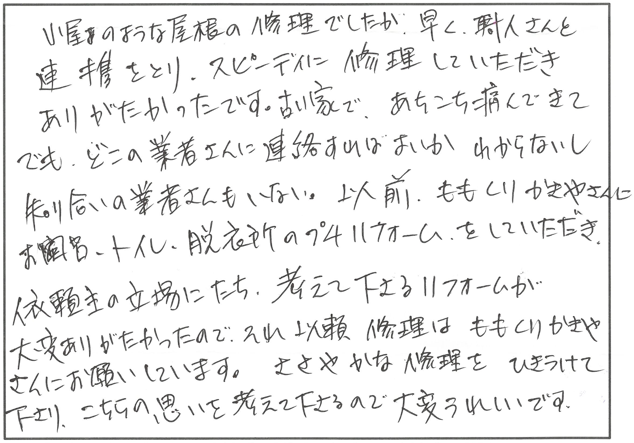 小屋まのような屋根の修理でしたが、早く、職人さんと
連携をとり、スピーディに修理していただき
ありがたかったです。古い家で、あちこち痛んできて
でも、どこの業者さんに連絡すればよいか わからないし
知り合いの業者さんもいない。以前、ももくりかきやさんに
お風呂、トイレ、脱衣所のプチリフォームをしていただき、
依頼主の立場にたち、考えて下さるリフォームが
大変ありがたかったので、それ以頼 修理は ももくりかきや
さんにお願いしています。 ささやかな修理を ひきうけて
下さり、こちらの思いを考えて下さるので大変うれしいです。